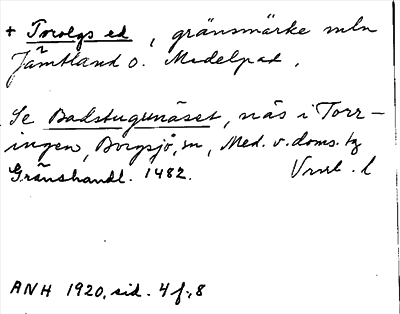 + Torolgs ed, gränsmärke mln
Jämtland o. Medelpad.
Se Badstugunäset, näs i Torr-
ingen, Borgsjö, sn, Med. v. doms. tg
Gränshandl. 1482.
ANH 1920, sid. 4 f., 8